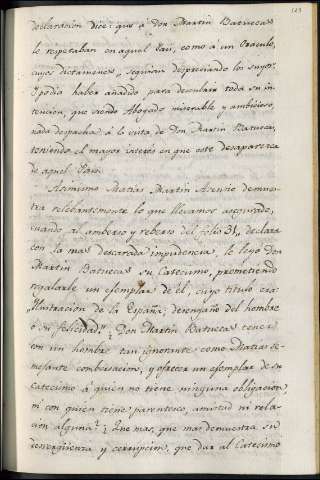 123
declaracion dice: que á Don Martin Batuecas
le respetaban en aquel Pais, como á un Oraculo,
cuyos dictamenes, seguian despreciando los suyos.
Y podia haber añadido para descubrir toda su in-
tencion, que siendo Abogado miserable y ambicioso,
nada despacha á la vista de Don Martin Batuecas,
teniendo el mayor interes en que este desaparezca
de aquel Pais.
Asimismo Matias Martin Asensio demues-
tra relebantemente lo que llevamos asegurado,
cuando al amberso y reberso del folio 31, declara
con la mas descarada impudencia, le leyó Don
Martin Batuecas su Catecismo, prometiendo
regalarle un ejemplar de él, cuyo titulo era:
"Ilustracion de la España, desengaño del hombre
ó su felicidad". ¿Don Martin Batuecas tener
con un hombre tan ignorante como Matias se-
mejante combersacion, y ofrecer un ejemplar de su
Catecismo á quien no tiene ninguna obligacion,
ni con quien tiene parentesco, amistad ni rela-
cion alguna? ¿Que mas, que mas demuestra su
desvergüenza y corrupcion, que dar al Catecismo